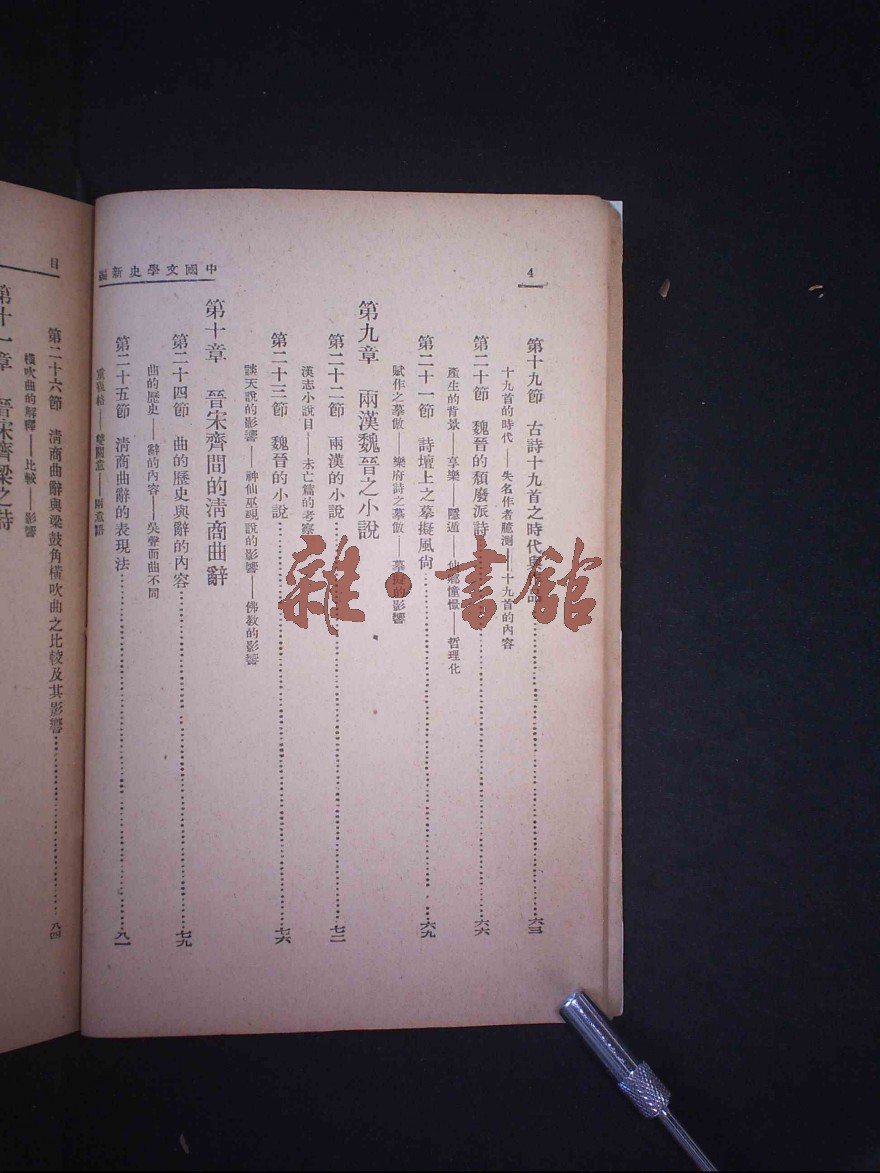 4
中國文學史新編
第十九節 古詩十九首之時代與作品 六三
十九首的時代——失名作者臆測——十九首的內容
第二十節 魏晉的頹廢派詩 六六
產生的背景——享樂——隱遁——仙鄉憧憬——哲理化
第二十一節 詩壇上之摹擬風尚 六九
賦作之摹倣——樂府詩之摹倣——摹擬的影響
第九章 兩漢魏晉之小說
第二十二節 兩漢的小說 七二
漢志小說目——未亡篇的考察
第二十三節 魏晉的小說 七六
談天說的影響——神仙巫覡說的影響——佛教的影響
第十章 晉宋齊間的清商曲辭
第二十四節 曲的歷史與辭的內容 七九
曲的歷史——辭的內容——吳聲西曲不同
第二十五節 清商曲辭的表現法 八一
重複格——雙關意——隔意語
目
第二十六節 清商曲辭與梁鼓角橫吹曲之比較及其影響 八四
橫吹曲的解釋——比較——影響
第十一章 晉宋齊梁之詩
雜·書館